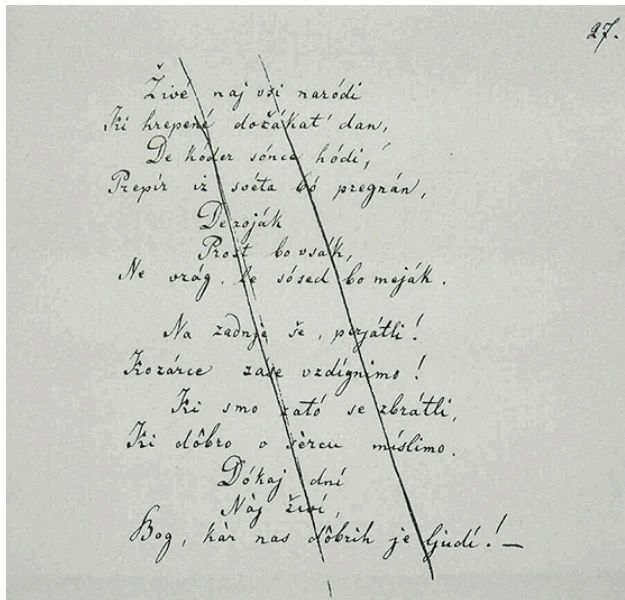 27.
Živé naj vsi naródi
Ki hrepené dožákat' dan,
De kóder sónce hódi,
Prepír iz svéta bó pregnán,
De roják
Prost bo vsák,
Ne vrág, le sósed bo meják.
Na zadnje še, perjátli!
Kozárce záse vzdígnimo!
Ki smo zató se zbrátli,
Ki dôbro v sèrcu míslimo.
Dókaj dní
Nàj živí,
Bog, kàr nas dôbrih je ljudí! —